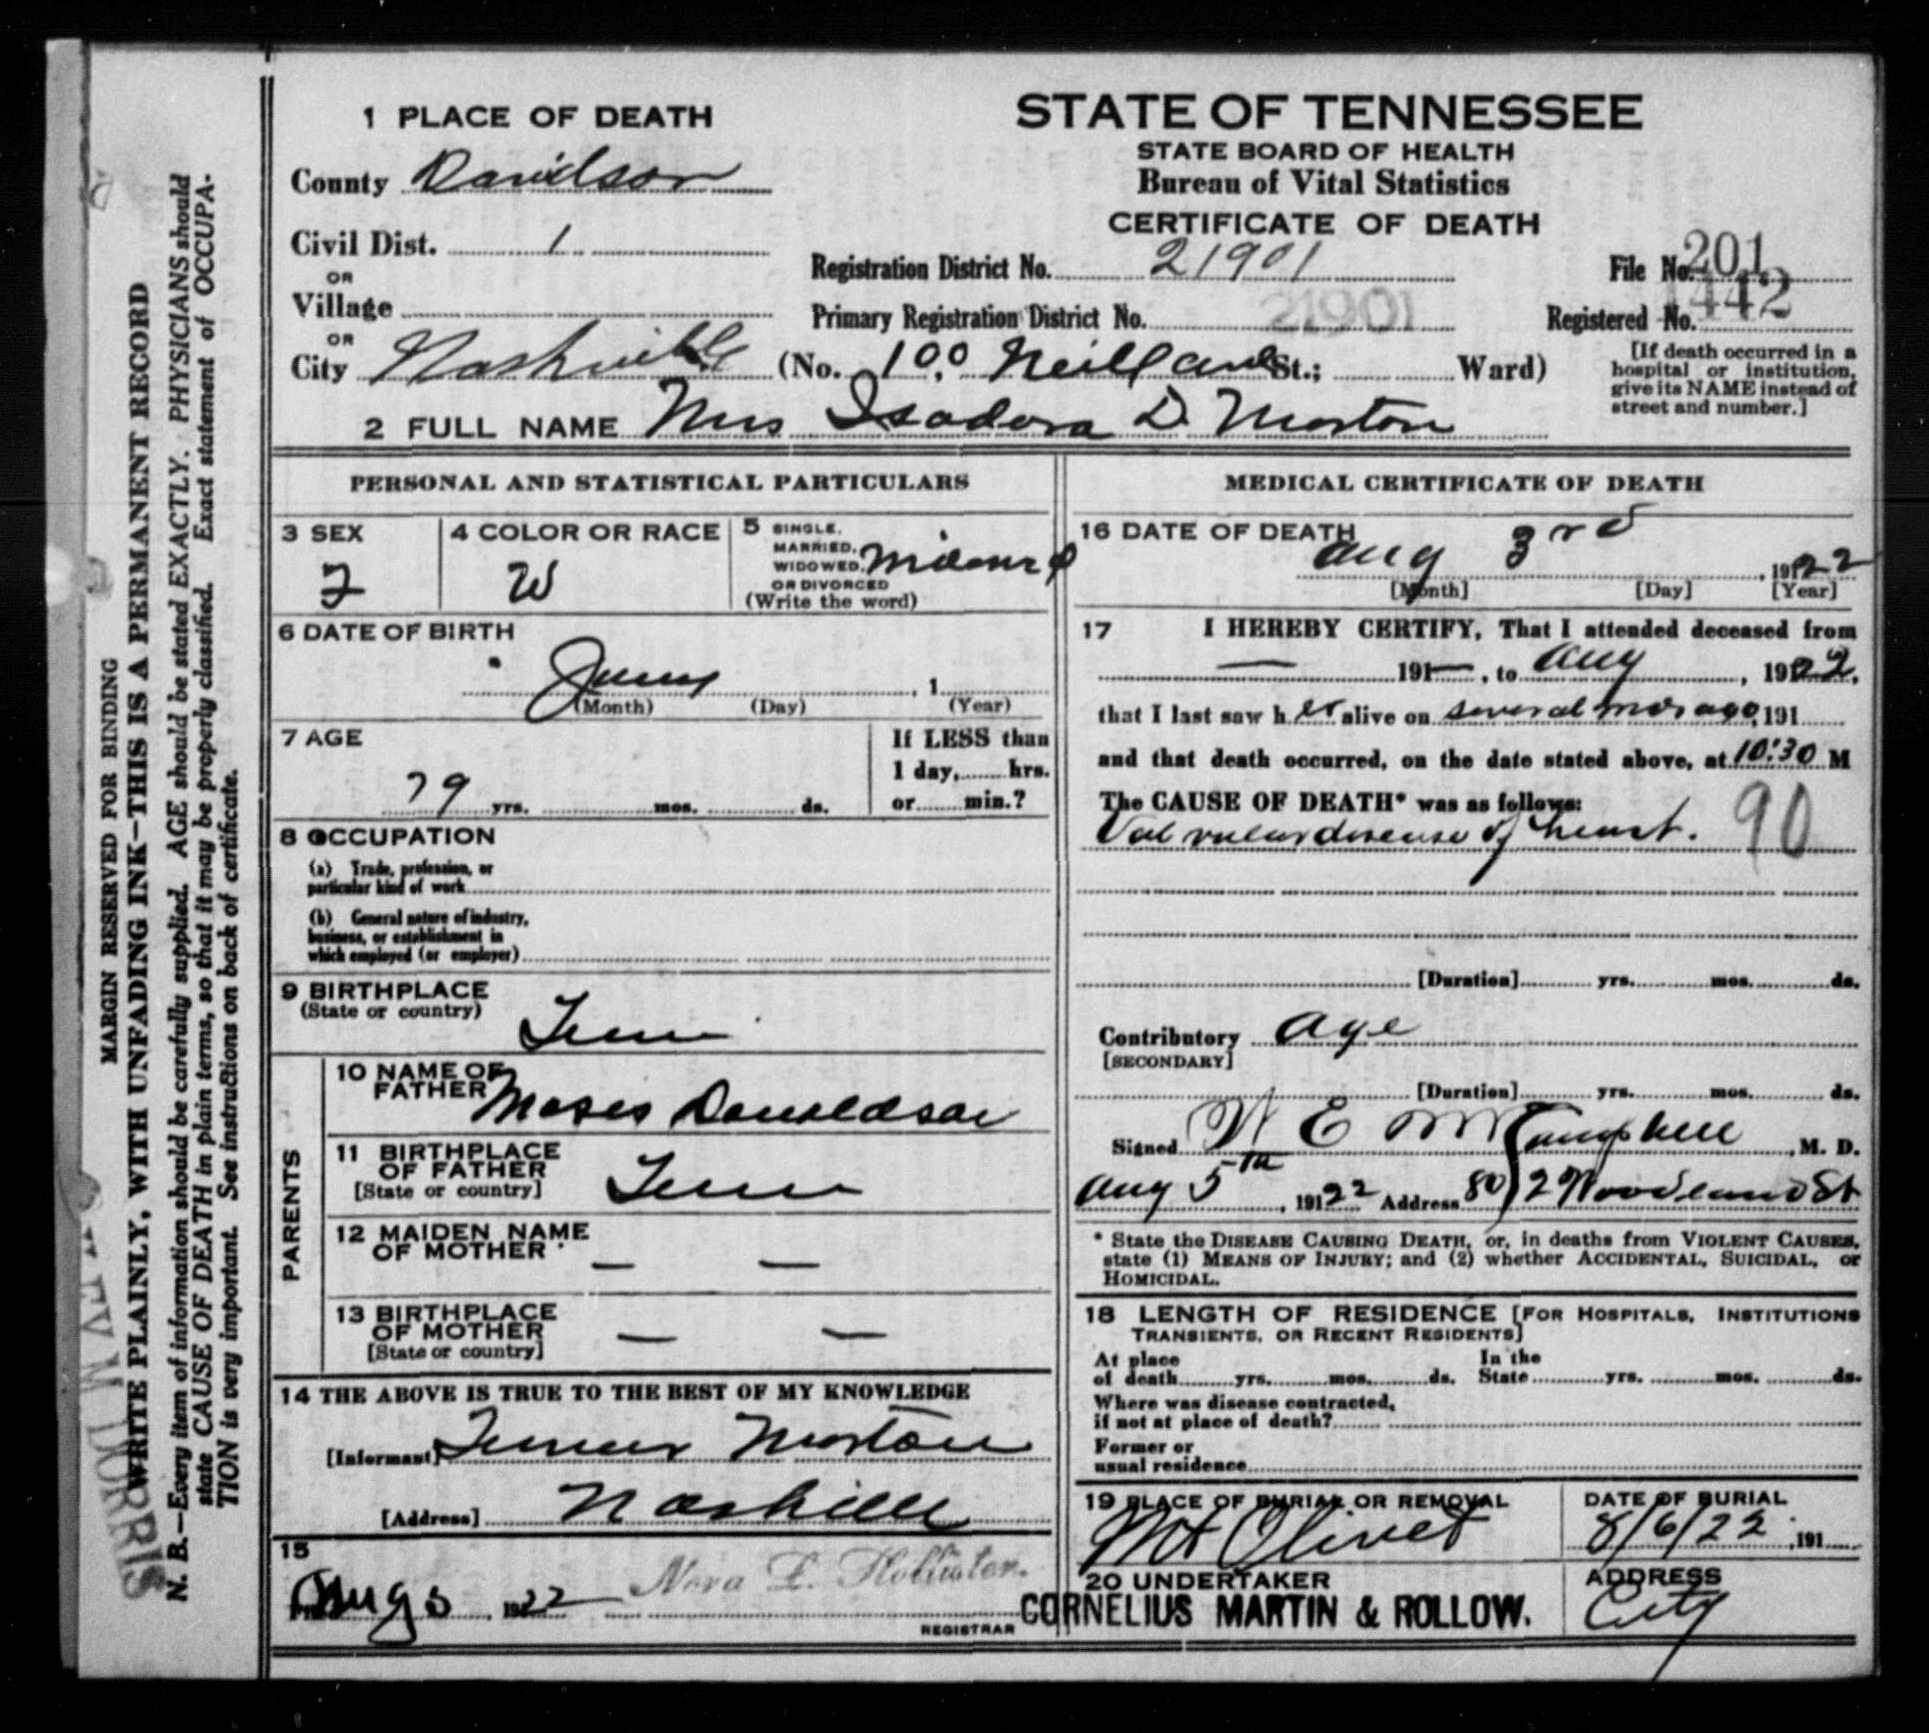 1 PLACE OF DEATH
County Davidson
Civil Dist. 1
OR
Village
OR
City Nashville (No. 100 Neill ave St.; Ward)
STATE OF TENNESSEE
STATE BOARD OF HEALTH
Bureau of Vital Statistics
CERTIFICATE OF DEATH
Registration District No. 21901
File No. 201
Primary Registration District No. 21901
Registered No. 1442
[If death occurred in a
hospital or institution,
give its NAME instead of
street and number.]
2 FULL NAME Mrs Isadora D. Morton
PERSONAL AND STATISTICAL PARTICULARS
3 SEX
F
4 COLOR OR RACE
W
5 SINGLE,
MARRIED,
WIDOWED,
OR DIVORCED
(Write the word)
Widowed
6 DATE OF BIRTH
(Month) (Day) , 1 (Year)
7 AGE
79 yrs. mos. ds.
If LESS than
1 day, hrs.
or min.?
8 OCCUPATION
(a) Trade, profession, or
particular kind of work
(b) General nature of industry,
business, or establishment in
which employed (or employer)
9 BIRTHPLACE
(State or country)
Tenn
PARENTS
10 NAME OF
FATHER Moses Donaldson
11 BIRTHPLACE
OF FATHER
[State or country]
Tenn
12 MAIDEN NAME
OF MOTHER — —
13 BIRTHPLACE
OF MOTHER — —
[State or country]
14 THE ABOVE IS TRUE TO THE BEST OF MY KNOWLEDGE
[Informant] Morton
[Address] Nashville
15
Aug 5 1922 Nora L. Hollister.
REGISTRAR
MEDICAL CERTIFICATE OF DEATH
16 DATE OF DEATH
Aug 3rd , 1922
[Month] [Day] [Year]
17 I HEREBY CERTIFY, That I attended deceased from
— 191—, to Aug , 1922,
that I last saw her alive on several mos ago, 191
and that death occurred, on the date stated above, at 10:30 M
The CAUSE OF DEATH* was as follows:
Valvular disease of heart. 90
[Duration] yrs. mos. ds.
Contributory Age
[SECONDARY]
[Duration] yrs. mos. ds.
Signed W E McCampbell , M. D.
Aug 5th , 1922 Address 802 Woodland St
* State the DISEASE CAUSING DEATH, or, in deaths from VIOLENT CAUSES,
state (1) MEANS OF INJURY; and (2) whether ACCIDENTAL, SUICIDAL, or
HOMICIDAL.
18 LENGTH OF RESIDENCE [FOR HOSPITALS, INSTITUTIONS
TRANSIENTS, OR RECENT RESIDENTS]
At place
of death yrs. mos. ds.
In the
State yrs. mos. ds.
Where was disease contracted,
if not at place of death?
Former or
usual residence
19 PLACE OF BURIAL OR REMOVAL
Mt Olivet
DATE OF BURIAL
8/6/22 , 191
20 UNDERTAKER
CORNELIUS MARTIN & ROLLOW.
ADDRESS
City
MARGIN RESERVED FOR BINDING
WRITE PLAINLY, WITH UNFADING INK—THIS IS A PERMANENT RECORD
N. B.—Every item of information should be carefully supplied. AGE should be stated EXACTLY. PHYSICIANS should
state CAUSE OF DEATH in plain terms, so that it may be properly classified. Exact statement of OCCUPA-
TION is very important. See instructions on back of certificate.
DORRIS